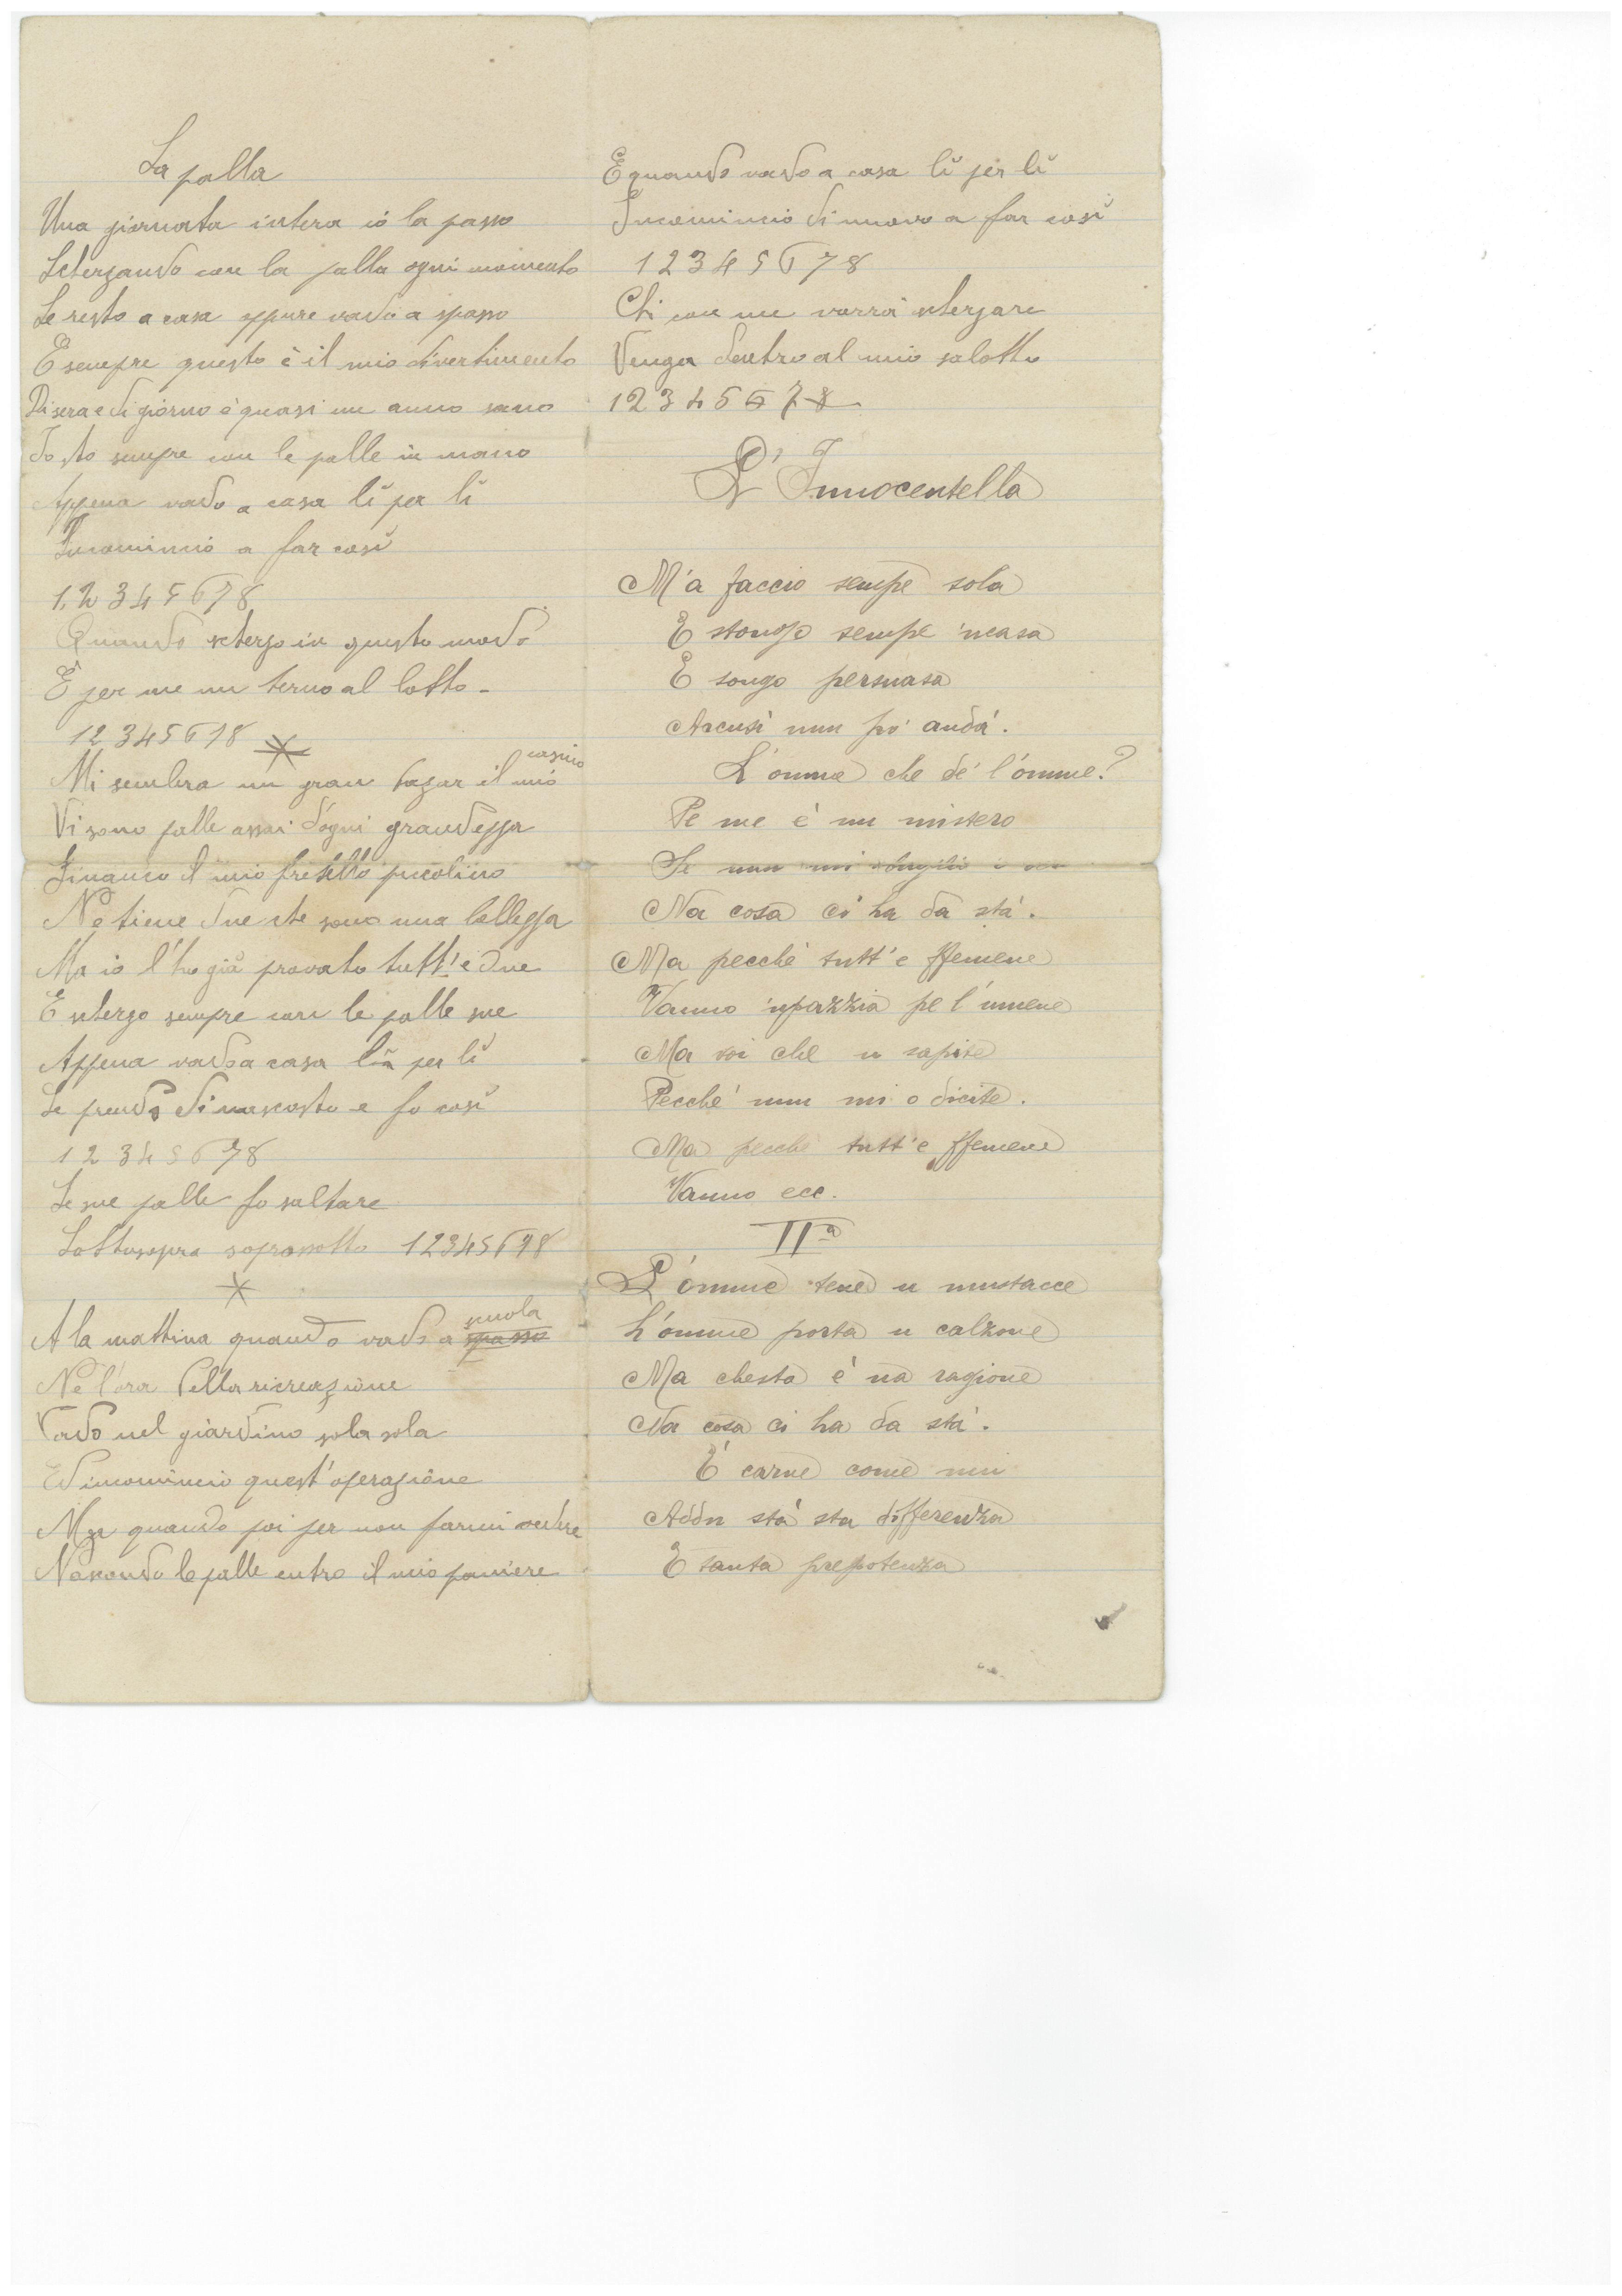 La palla
Una giornata intera io la passo
Scherzando con la palla ogni momento
Se resto a casa oppure vado a spasso
E sempre questo è il mio divertimento
Di sera e di giorno è quasi un anno sano
Io sto sempre con le palle in mano
Appena vado a casa lì per lì
Incomincio a far così
1, 2 3 4 5 6 7 8
Quando scherzo in questo modo
È per me un terno al lotto -
1 2 3 4 5 6 7 8
Mi sembra un gran bazar il mio casino
Vi sono palle assai d'ogni grandezza
Financo il mio fratello piccolino
Ne tiene due che sono una bellezza
Ma io l'ho già provato tutt'e due
E scherzo sempre con le palle sue
Appena vado a casa lì per lì
Le prendo di nascosto e fo così
1 2 3 4 5 6 7 8
Le sue palle fo saltare
Sottosopra soprasotto 1 2 3 4 5 6 7 8
A la mattina quando vado a spasso scuola
Ne l'ora della ricreazione
Vado nel giardino sola sola
Ed incomincio quest'operazione
Ma quando poi per non farmi vedere
Nascondo le palle entro il mio paniere
E quando vado a casa lì per lì
Incomincio di nuovo a far così
1 2 3 4 5 6 7 8
Chi con me vorrà scherzare
Venga dentro al mio salotto
1 2 3 4 5 6 7 8
L'Innocentella
M'a faccio sempe sola
E stongo sempe 'ncasa
E songo persuasa
Accusì nun pò andà.
L'omme che de' l'omme?
Pe me è nu mistero
Se nun mi
Na cosa ci ha da stà.
Ma pecchè tutt'e ffemene
Vanno 'npazzia pe l'umene
Ma voi che u sapite
Pecché nun mi o dicite.
Ma pecchè tutt'e ffemene
Vanno ecc.
IIa
L'omme tene u mustacce
L'omme porta u calzone
Ma chesta è na ragione
Na cosa ci ha da stà.
È carne come nui
Addu stà sta differenza
E tanta prepotenza